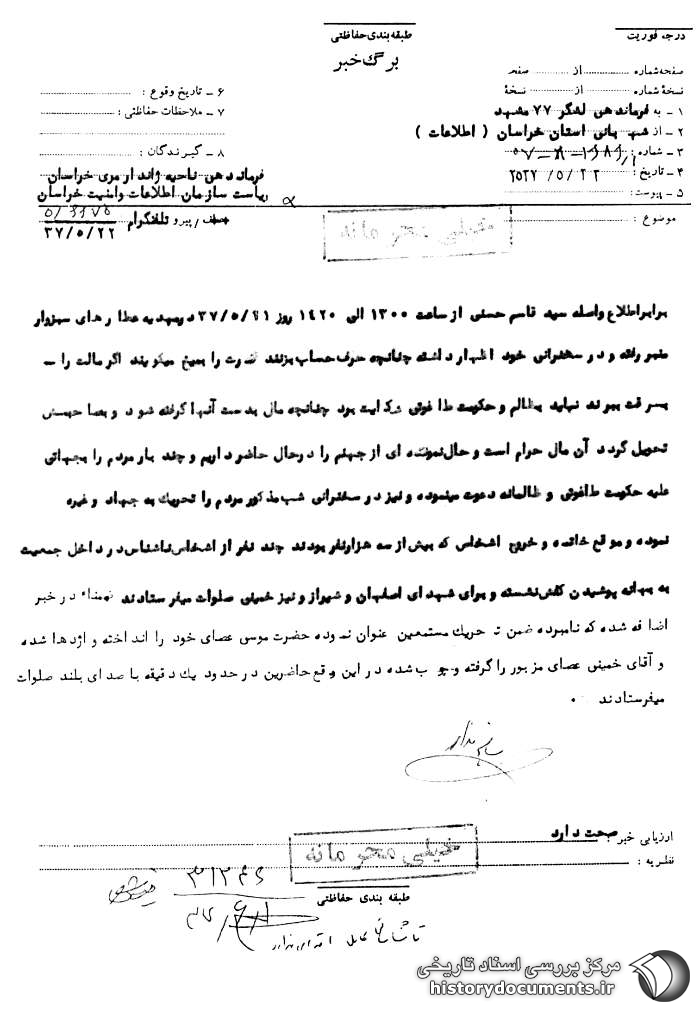 طبقه بندی حفاظتی
برگ خبر
درجه فوریت
صفحه شماره از صفحه
نسخهٔ شماره از نسخهٔ
۱ ـ به فرماندهی لشگر ۷۷ مشهد
۲ ـ از شهربانی استان خراسان ( اطلاعات )
۳ ـ شماره :
۴ ـ تاریخ : ۲۵۳۷/۵/۲۲
۵ ـ پیوست :
۶ ـ تاریخ وقوع :
۷ ـ ملاحظات حفاظتی :
۸ ـ گیرندگان :
فرماندهی ناحیه ژاندارمری خراسان
ریاست سازمان اطلاعات وامنیت خراسان
عطف / پیرو تلفنگرام
۳۷/۵/۲۲
موضوع :
خیلی محرمانه
برابر اطلاع واصله سید قاسم حسنی از ساعت ۱۳۰۰ الی ۱۴۲۰ روز ۳۷/۵/۲۱ در مسجد عطارهای سبزوار
منبر رفته و در سخنرانی خود اظهار داشته چنانچه حرف حساب بزنند قدرت را بمیخ میکوبند اگر مالت را ــ
بسرقت ببرند نباید بظالم و حکومت طاغوتی شکایت برد چنانچه مال بدست آنها گرفته شود و بصاحبش
تحویل گردد آن مال حرام است و حال نمونه ای از جهنم را درحال حاضر داریم و چند بار مردم را بجهاتی
علیه حکومت طاغوتی و ظالمانه دعوت مینموده و نیز در سخنرانی شب مذکور مردم را تحریک به جهاد و غیره
نموده و موقع خاتمه و خروج اشخاص که بیش از سه هزار نفر بودند چند نفر از اشخاص ناشناس در داخل جمعیت
به بهانه پوشیدن کفش نشسته و برای شهدای اصفهان و شیراز و نیز خمینی صلوات میفرستادند ضمناً در خبر
اضافه شده که نامبرده ضمن تحریک مستمعین عنوان نموده حضرت موسی عصای خود را انداخته و اژدها شده
و آقای خمینی عصای مزبور را گرفته و چوب شده در این موقع حاضرین در حدود یک دقیقه با صدای بلند صلوات
میفرستادند .
ارزیابی خبر صحت دارد
نظریه :
خیلی محرمانه
طبقه بندی حفاظتی
مرکز بررسی اسناد تاریخی
historydocuments.ir